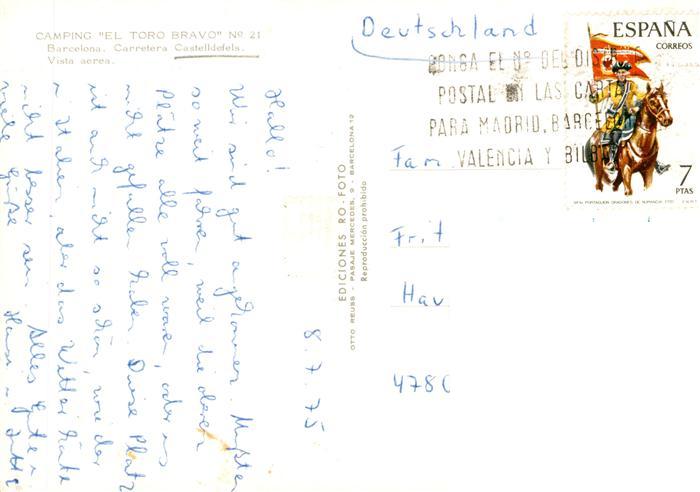 CAMPING "EL TORO BRAVO" Nº 21
Barcelona. Carretera Castelldefels.
Vista aerea.
8.7.75
Hallo!
Wir sind gut angekommen. Mußten
so weit fahren, weil die oberen
Plätze alle voll waren, oder uns
nicht gefallen haben. Dieser Platz
ist auch nicht so schön, wie der
in Italien, aber das Wetter könnte
nicht besser sein. Alles Gute u
viele Grüße Hansi u
EDICIONES RO-FOTO
OTTO REUSS - PASAJE MERCEDES, 9 - BARCELONA 12
Reproducción prohibida
Deutschland
PONGA EL Nº DEL DIS
POSTAL EN LAS CART
PARA MADRID, BARCEL
VALENCIA Y BILB
ESPAÑA
CORREOS
7
PTAS
Fam.
Frit
Hav
478